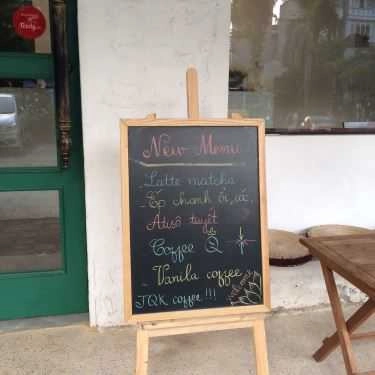 New Menu
- Latte matcha
- Ép chanh ổi, cóc,
Atisô tuyết
Coffee Q
- Vanila coffee
JQK coffee !!!